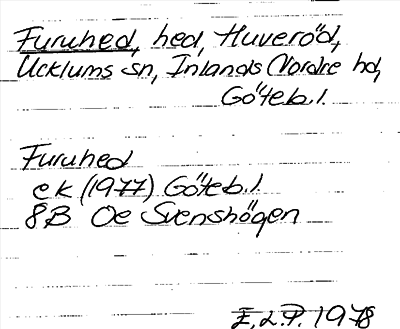 Furuhed, hed, Huveröd,
Ucklums sn, Inlands Nordre hd,
Göteb.l.
Furuhed
ek (1977) Göteb.l.
8B Oe Svenshögen
E.L.P. 1978